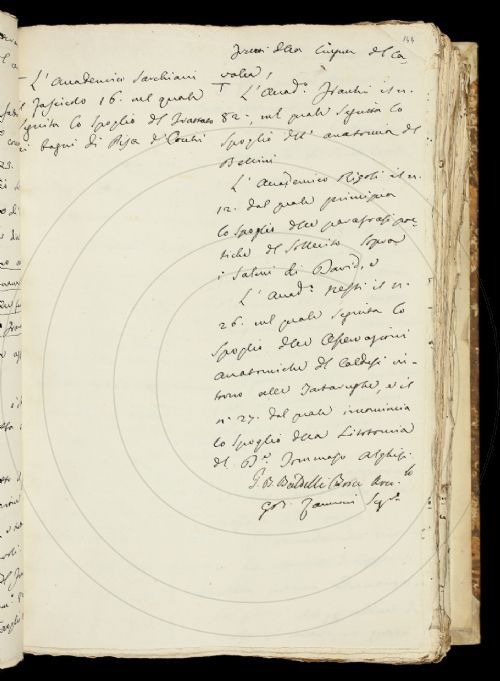 144
L'Accademico Sarchiani
fascicolo 16. nel quale
seguita lo Spoglio del Trattato
Bagni di Pisa di Cocchi
della lingua del Ca,
valca,
L'Accad.º Franchi il n.
82., nel quale seguita lo
Spoglio dell'anatomia del
Bellini
L'Accademico Rigoli il n.
12. dal quale principia
lo Spoglio delle parafrasi poe,
tiche del Sollecito Sopra
i Salmi di David, e
L'Accad.º Nesti il n.
26. nel quale seguita lo
Spoglio delle Osservazioni
anatomiche del Caldesi in,
torno alle Tartarughe, e il
n.º 27. dal quale incomincia
lo Spoglio della Litotomia
del D.re Tommaso Alghisi.
G. B. Baldelli Vice
Gio. Zannoni Seg.º